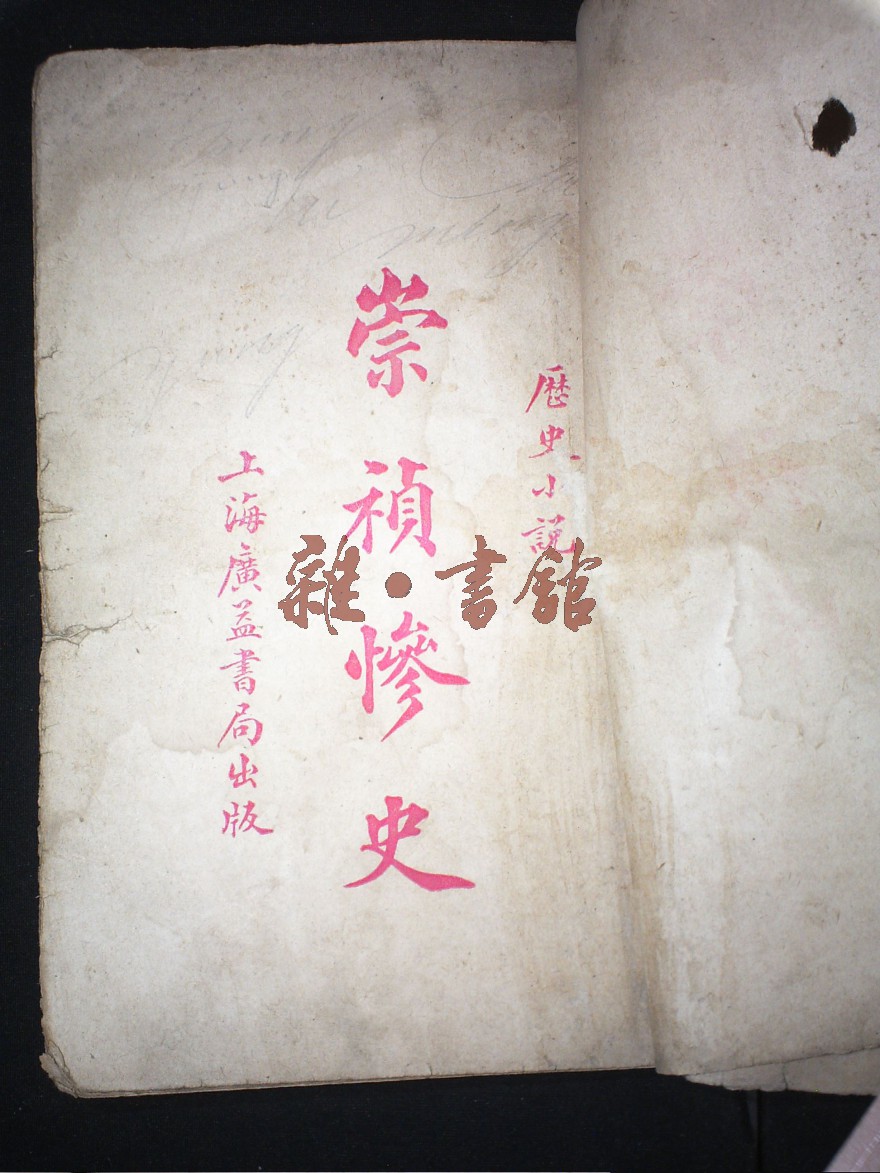 歷史小説
崇禎慘史
上海廣益書局出版
雜·書館